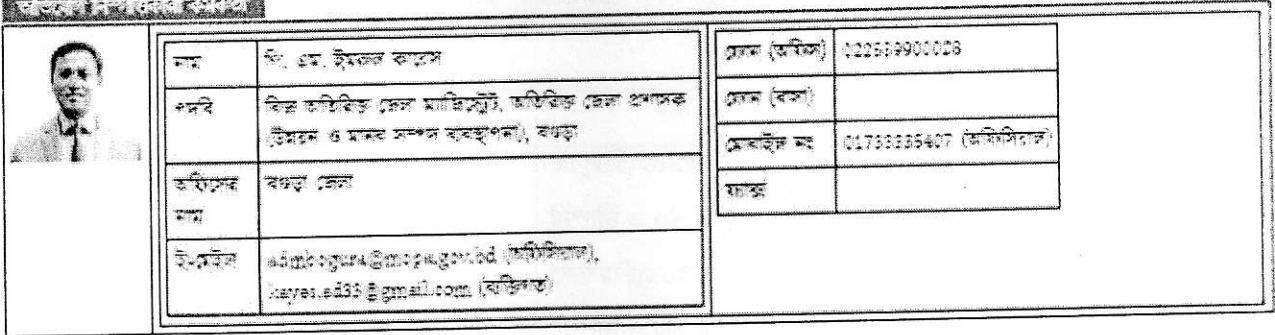 নাম
পি, এম, ইমরুল কায়েস
পদবি
বিজ্ঞ অতিরিক্ত জেলা ম্যাজিস্ট্রেট, অতিরিক্ত জেলা প্রশাসক
(উন্নয়ন ও মানব সম্পদ ব্যবস্থাপনা), বগুড়া
অফিসের
নাম
বগুড়া জেলা
ই-মেইল
admbogura@mopa.gov.bd (অফিসিয়াল),
kayes.ad33@gmail.com (ব্যক্তিগত)
ফোন (অফিস)
022589900028
ফোন (বাসা)
মোবাইল নং
01733335407 (অফিসিয়াল)
ফ্যাক্স